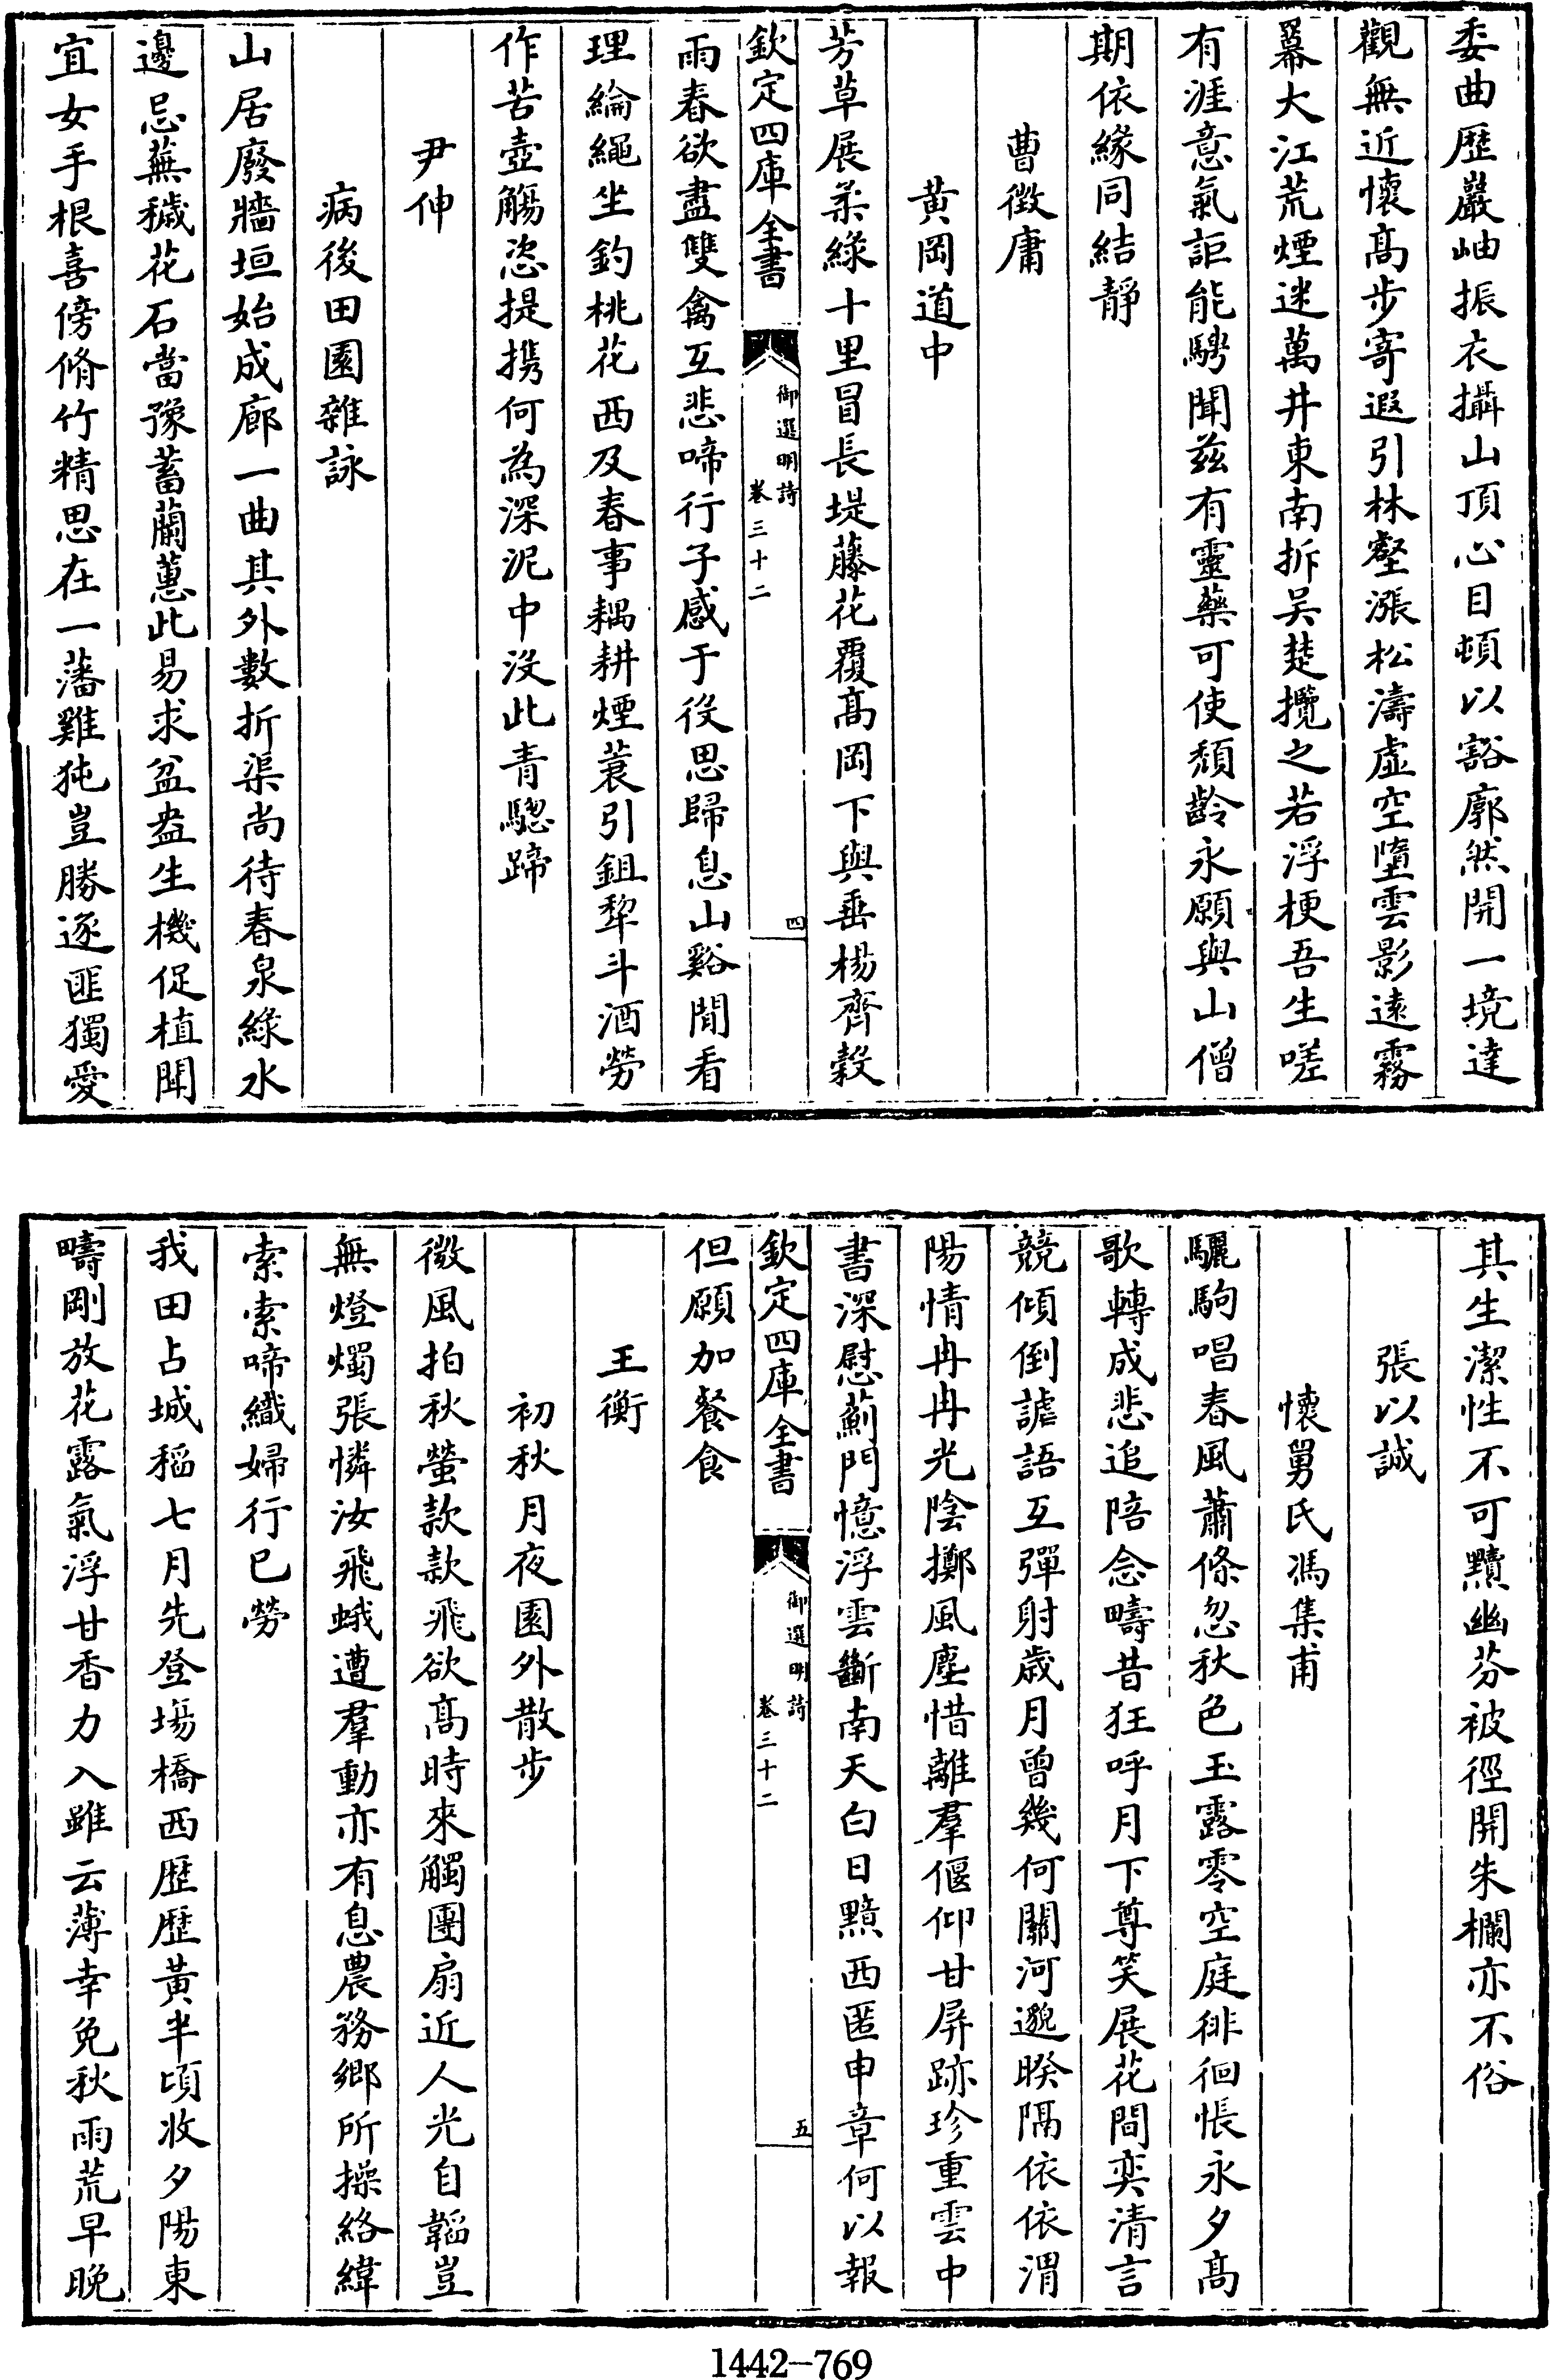 委曲歷巖岫振衣攝山頂心目頓以豁廓然開一境達
觀無近懷髙步寄遐引林壑漲松濤虛空墮雲影逺霧
冪大江荒煙迷萬井東南拆吳楚攬之若浮梗吾生嗟
有涯意氣詎能騁聞兹有靈藥可使頽齡永願與山僧
期依緣同結靜
曹徵庸
黄岡道中
芳草展柔綠十里冒長堤藤花覆髙岡下與垂楊齊榖
欽定四庫全書
御選明詩
卷三十二
四
雨春欲盡雙禽互悲啼行子感于役思歸息山谿閒看
理綸繩坐釣桃花西及春事耦耕煙蓑引鉏犂斗酒勞
作苦壺觴恣提携何為深泥中没此青驄蹄
尹伸
病後田園雜詠
山居廢牆垣始成廊一曲其外數折渠尚待春泉緑水
邊忌蕪穢花石當豫蓄蘭蕙此易求盆盎生機促植聞
宜女手根喜傍脩竹精思在一藩雞㹠豈勝逐匪獨愛
其生潔性不可黷幽芬被徑開朱欄亦不俗
張以誠
懷舅氏馮集甫
驪駒唱春風蕭條忽秋色玉露零空庭徘徊悵永夕髙
歌轉成悲追陪念疇昔狂呼月下尊笑展花間奕清言
競傾倒謔語互彈射歲月曾幾何關河邈暌隔依依渭
陽情冉冉光陰擲風塵惜離羣偃仰甘屏跡珍重雲中
書深慰薊門憶浮雲斷南天白日黯西匿申章何以報
欽定四庫全書
御選明詩
卷三十二
五
但願加餐食
王衡
初秋月夜園外散步
微風拍秋螢款款飛欲髙時來觸團扇近人光自韜豈
無燈燭張憐汝飛蛾遭羣動亦有息農務鄉所操絡緯
索索啼織婦行已勞
我田占城稻七月先登場橋西歷歷黃半頃收夕陽東
疇剛放花露氣浮甘香力入雖云薄幸免秋雨荒早晚
1442—769